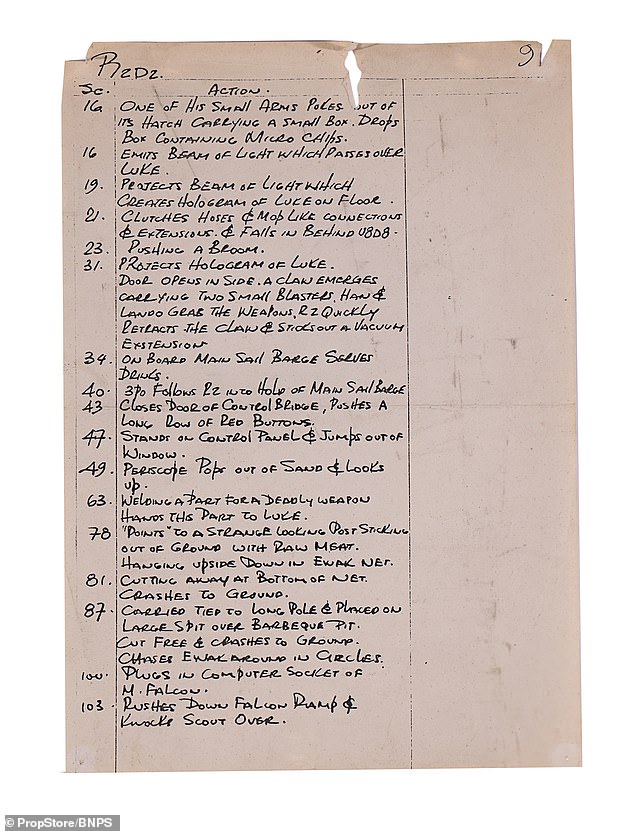 R2D2. 9
Sc. ACTION.
16 ONE OF HIS SMALL ARMS POKES OUT OF
ITS HATCH CARRYING A SMALL BOX. DROPS
BOX CONTAINING MICRO CHIPS.
16 EMITS BEAM OF LIGHT WHICH PASSES OVER
LUKE.
19. PROJECTS BEAM OF LIGHT WHICH
CREATES HOLOGRAM OF LUKE ON FLOOR.
21. CLUTCHES HOSES & MOP LIKE CONNECTIONS
& EXTENSIONS. & FALLS IN BEHIND U8D8.
23. PUSHING A BROOM.
31. PROJECTS HOLOGRAM OF LUKE.
DOOR OPENS IN SIDE. A CLAW EMERGES
CARRYING TWO SMALL BLASTERS, HAN &
LANDO GRAB THE WEAPONS, R2 QUICKLY
RETRACTS THE CLAW & STICKS OUT A VACUUM
EXSTENSION
34. ON BOARD MAIN SAIL BARGE SERVES
DRINKS.
40. 3PO FOLLOWS R2 INTO HOLD OF MAIN SAIL BARGE
43 CLOSES DOOR OF CONTROL BRIDGE, PUSHES A
LONG ROW OF RED BUTTONS.
47. STANDS ON CONTROL PANEL & JUMPS OUT OF
WINDOW.
49. PERISCOPE POPS OUT OF SAND & LOOKS
UP.
63. WELDING A PART FOR A DEADLY WEAPON
HANDS THIS PART TO LUKE.
78 "POINTS" TO A STRANGE LOOKING POST STICKING
OUT OF GROUND WITH RAW MEAT.
HANGING UPSIDE DOWN IN EWAK NET.
81. CUTTING AWAY AT BOTTOM OF NET.
CRASHES TO GROUND.
87. CARRIED TIED TO LONG POLE & PLACED ON
LARGE SPIT OVER BARBEQUE PIT.
CUT FREE & CRASHES TO GROUND.
CHASES EWAK AROUND IN CIRCLES.
100. PLUGS IN COMPUTER SOCKET OF
M. FALCON.
103. RUSHES DOWN FALCON RAMP &
KNOCKS SCOUT OVER.
© PropStore/BNPS